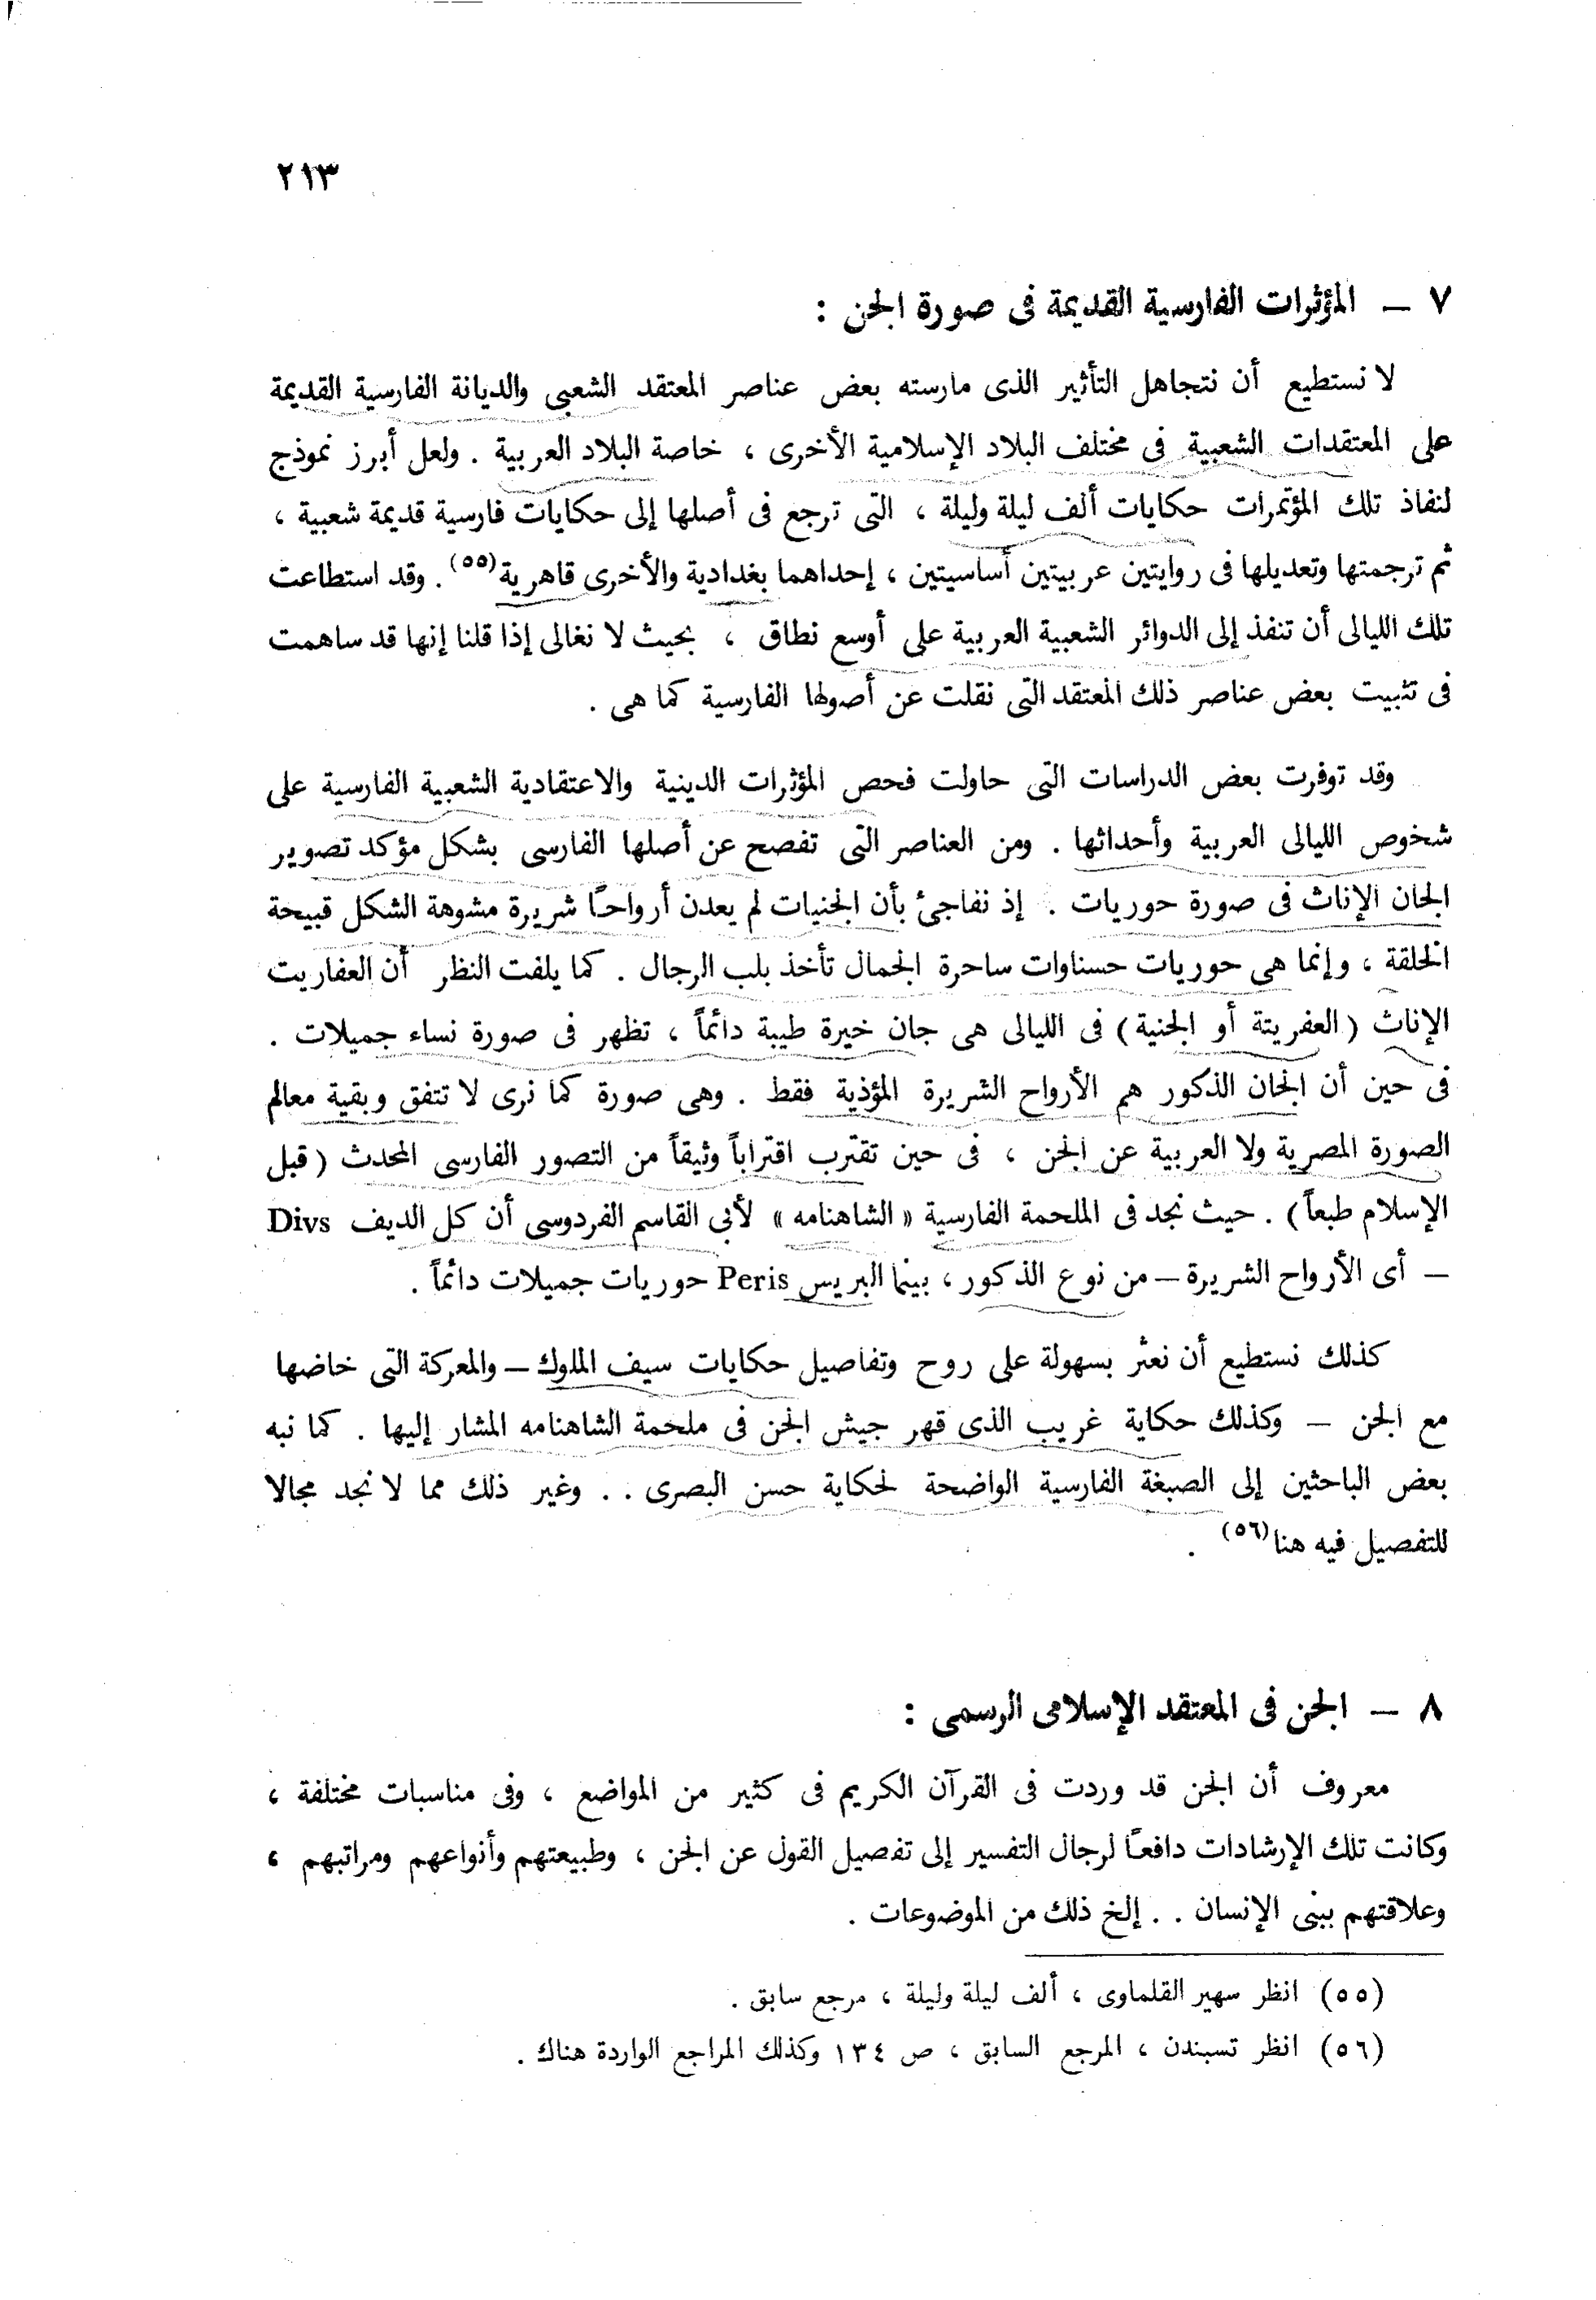 ٢١٣
٧ – المؤثرات الفارسية القديمة فى صورة الجن :
لا نستطيع أن نتجاهل التأثير الذى مارسته بعض عناصر المعتقد الشعبى والديانة الفارسية القديمة
على المعتقدات الشعبية فى مختلف البلاد الإسلامية الأخرى ، خاصة البلاد العربية . ولعل أبرز نموذج
لنفاذ تلك المؤتمرات حكايات ألف ليلة وليلة ، التى ترجع فى أصلها إلى حكايات فارسية قديمة شعبية ،
ثم ترجمتها وتعديلها فى روايتين عربيتين أساسيتين ، إحداهما بغدادية والأخرى قاهرية(٥٥) . وقد استطاعت
تلك الليالى أن تنفذ إلى الدوائر الشعبية العربية على أوسع نطاق ، بحيث لا نغالى إذا قلنا إنها قد ساهمت
فى تثبيت بعض عناصر ذلك المعتقد التى نقلت عن أصولها الفارسية كما هى .
وقد توفرت بعض الدراسات التى حاولت فحص المؤثرات الدينية والاعتقادية الشعبية الفارسية على
شخوص الليالى العربية وأحداثها . ومن العناصر التى تفصح عن أصلها الفارسى بشكل مؤكد تصوير
الجان الإناث فى صورة حوريات . إذ نفاجئ بأن الجنيات لم يعدن أرواحًا شريرة مشوهة الشكل قبيحة
الخلقة ، وإنما هى حوريات حسناوات ساحرة الجمال تأخذ بلب الرجال . كما يلفت النظر أن العفاريت
الإناث (العفريتة أو الجنية) فى الليالى هى جان خيرة طيبة دائماً ، تظهر فى صورة نساء جميلات .
فى حين أن الجان الذكور هم الأرواح الشريرة المؤذية فقط . وهى صورة كما نرى لا تتفق وبقية معالم
الصورة المصرية ولا العربية عن الجن ، فى حين تقترب اقتراباً وثيقاً من التصور الفارسى المحدث (قبل
الإسلام طبعاً) . حيث نجد فى الملحمة الفارسية «الشاهنامه» لأبى القاسم الفردوسى أن كل الديف Divs
– أى الأرواح الشريرة – من نوع الذكور ، بينما البريس Peris حوريات جميلات دائماً .
كذلك نستطيع أن نعثر بسهولة على روح وتفاصيل حكايات سيف الملوك – والمعركة التى خاضها
مع الجن – وكذلك حكاية غريب الذى قهر جيش الجن فى ملحمة الشاهنامه المشار إليها . كما نبه
بعض الباحثين إلى الصبغة الفارسية الواضحة لحكاية حسن البصرى . . وغير ذلك مما لا نجد مجالا
للتفصيل فيه هنا(٥٦) .
٨ – الجن فى المعتقد الإسلامى الرسمى :
معروف أن الجن قد وردت فى القرآن الكريم فى كثير من المواضع ، وفى مناسبات مختلفة ،
وكانت تلك الإرشادات دافعًا لرجال التفسير إلى تفصيل القول عن الجن ، وطبيعتهم وأنواعهم ومراتبهم ،
وعلاقتهم ببنى الإنسان . . إلخ ذلك من الموضوعات .
(٥٥) انظر سهير القلماوى ، ألف ليلة وليلة ، مرجع سابق .
(٥٦) انظر تسبندن ، المرجع السابق ، ص ١٣٤ وكذلك المراجع الواردة هناك .